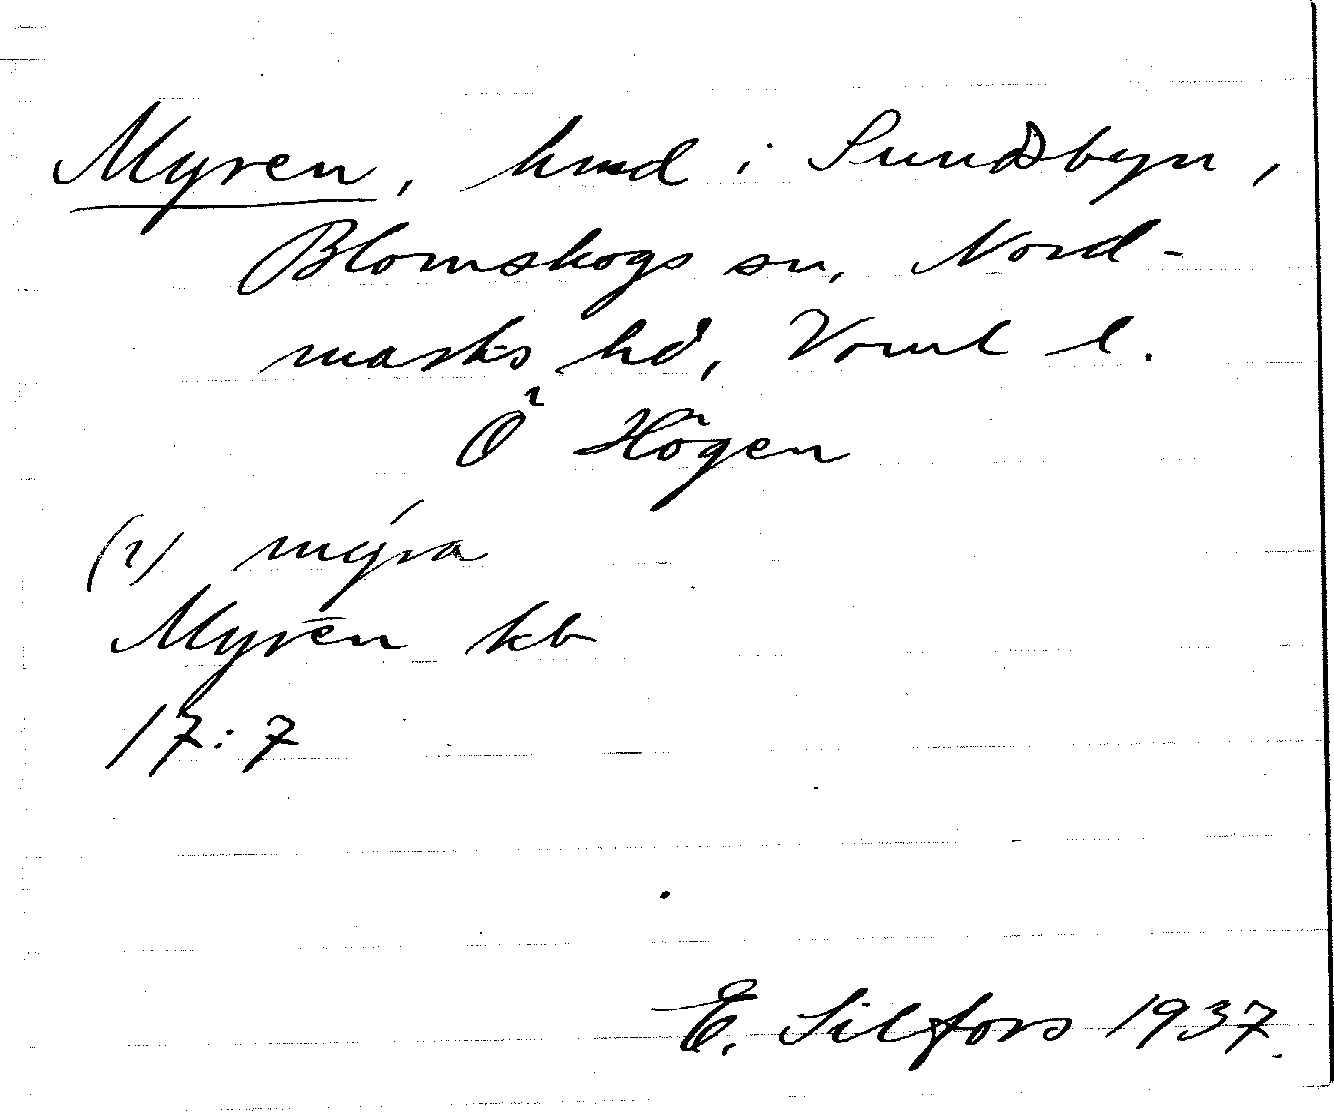 Myren, hmd i Sundsbyn,
Blomskogs sn, Nord-
marks hd, Värml l.
Ö Högen
(1) mýra
Myren kb
17:7
E. Silfors 1937.